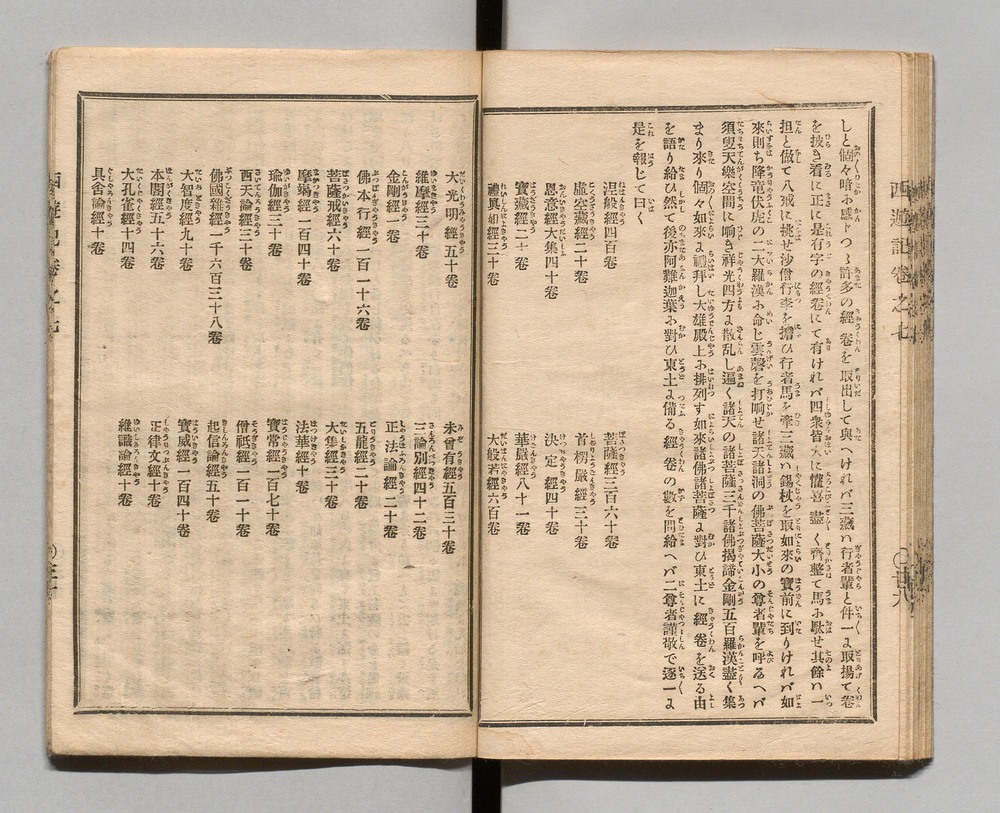 西遊記卷之七
しと個々暗に感じつゝ許多の經卷を取出して與へければ三藏ハ行者輩と件一に取揚て卷
を披き看に正に是有字の經卷にて有ければ四衆皆大に懽喜盡く齊整て馬に駄せ其餘ハ一
担と做て八戒に挑せ沙僧行李を擔ひ行者馬を牽三藏ハ錫杖を取如來の寶前に到りければ如
來則ち降竜伏虎の二大羅漢に命じ雲磬を打响せ諸天諸洞の佛菩薩大小の尊者輩を呼るへば
須臾天樂空間に响き祥光四方に散乱し遍く諸天の諸菩薩三千諸佛掲諦金剛五百羅漢盡く集
まり來り個々如來に禮拜し大雄殿上に排列す如來諸佛諸菩薩に對ひ東土に經卷を送る由
を語り給ひ然て後亦阿難迦葉に對ひ東土に備る經卷の數を問給へば二尊者謹敬で逐一に
是を報じて曰く
涅般經四百卷
菩薩經三百六十卷
虛空藏經二十卷
首楞嚴經三十卷
恩意經大集四十卷
決定經四十卷
寶藏經二十卷
華嚴經八十一卷
禮眞如經三十卷
大般若經六百卷
大光明經五十卷
未曾有經五百三十卷
維摩經三十卷
三論別經四十二卷
金剛經一卷
正法論經二十卷
佛本行經一百一十六卷
五龍經二十卷
菩薩戒經六十卷
大集經三十卷
摩竭經一百四十卷
法華經十卷
瑜伽經三十卷
寶常經一百七十卷
西天論經三十卷
僧祇經一百一十卷
佛國雜經一千六百三十八卷
起信論經五十卷
大智度經九十卷
寶威經一百四十卷
本閣經五十六卷
正律文經十卷
大孔雀經十四卷
維識論經十卷
具舍論經十卷